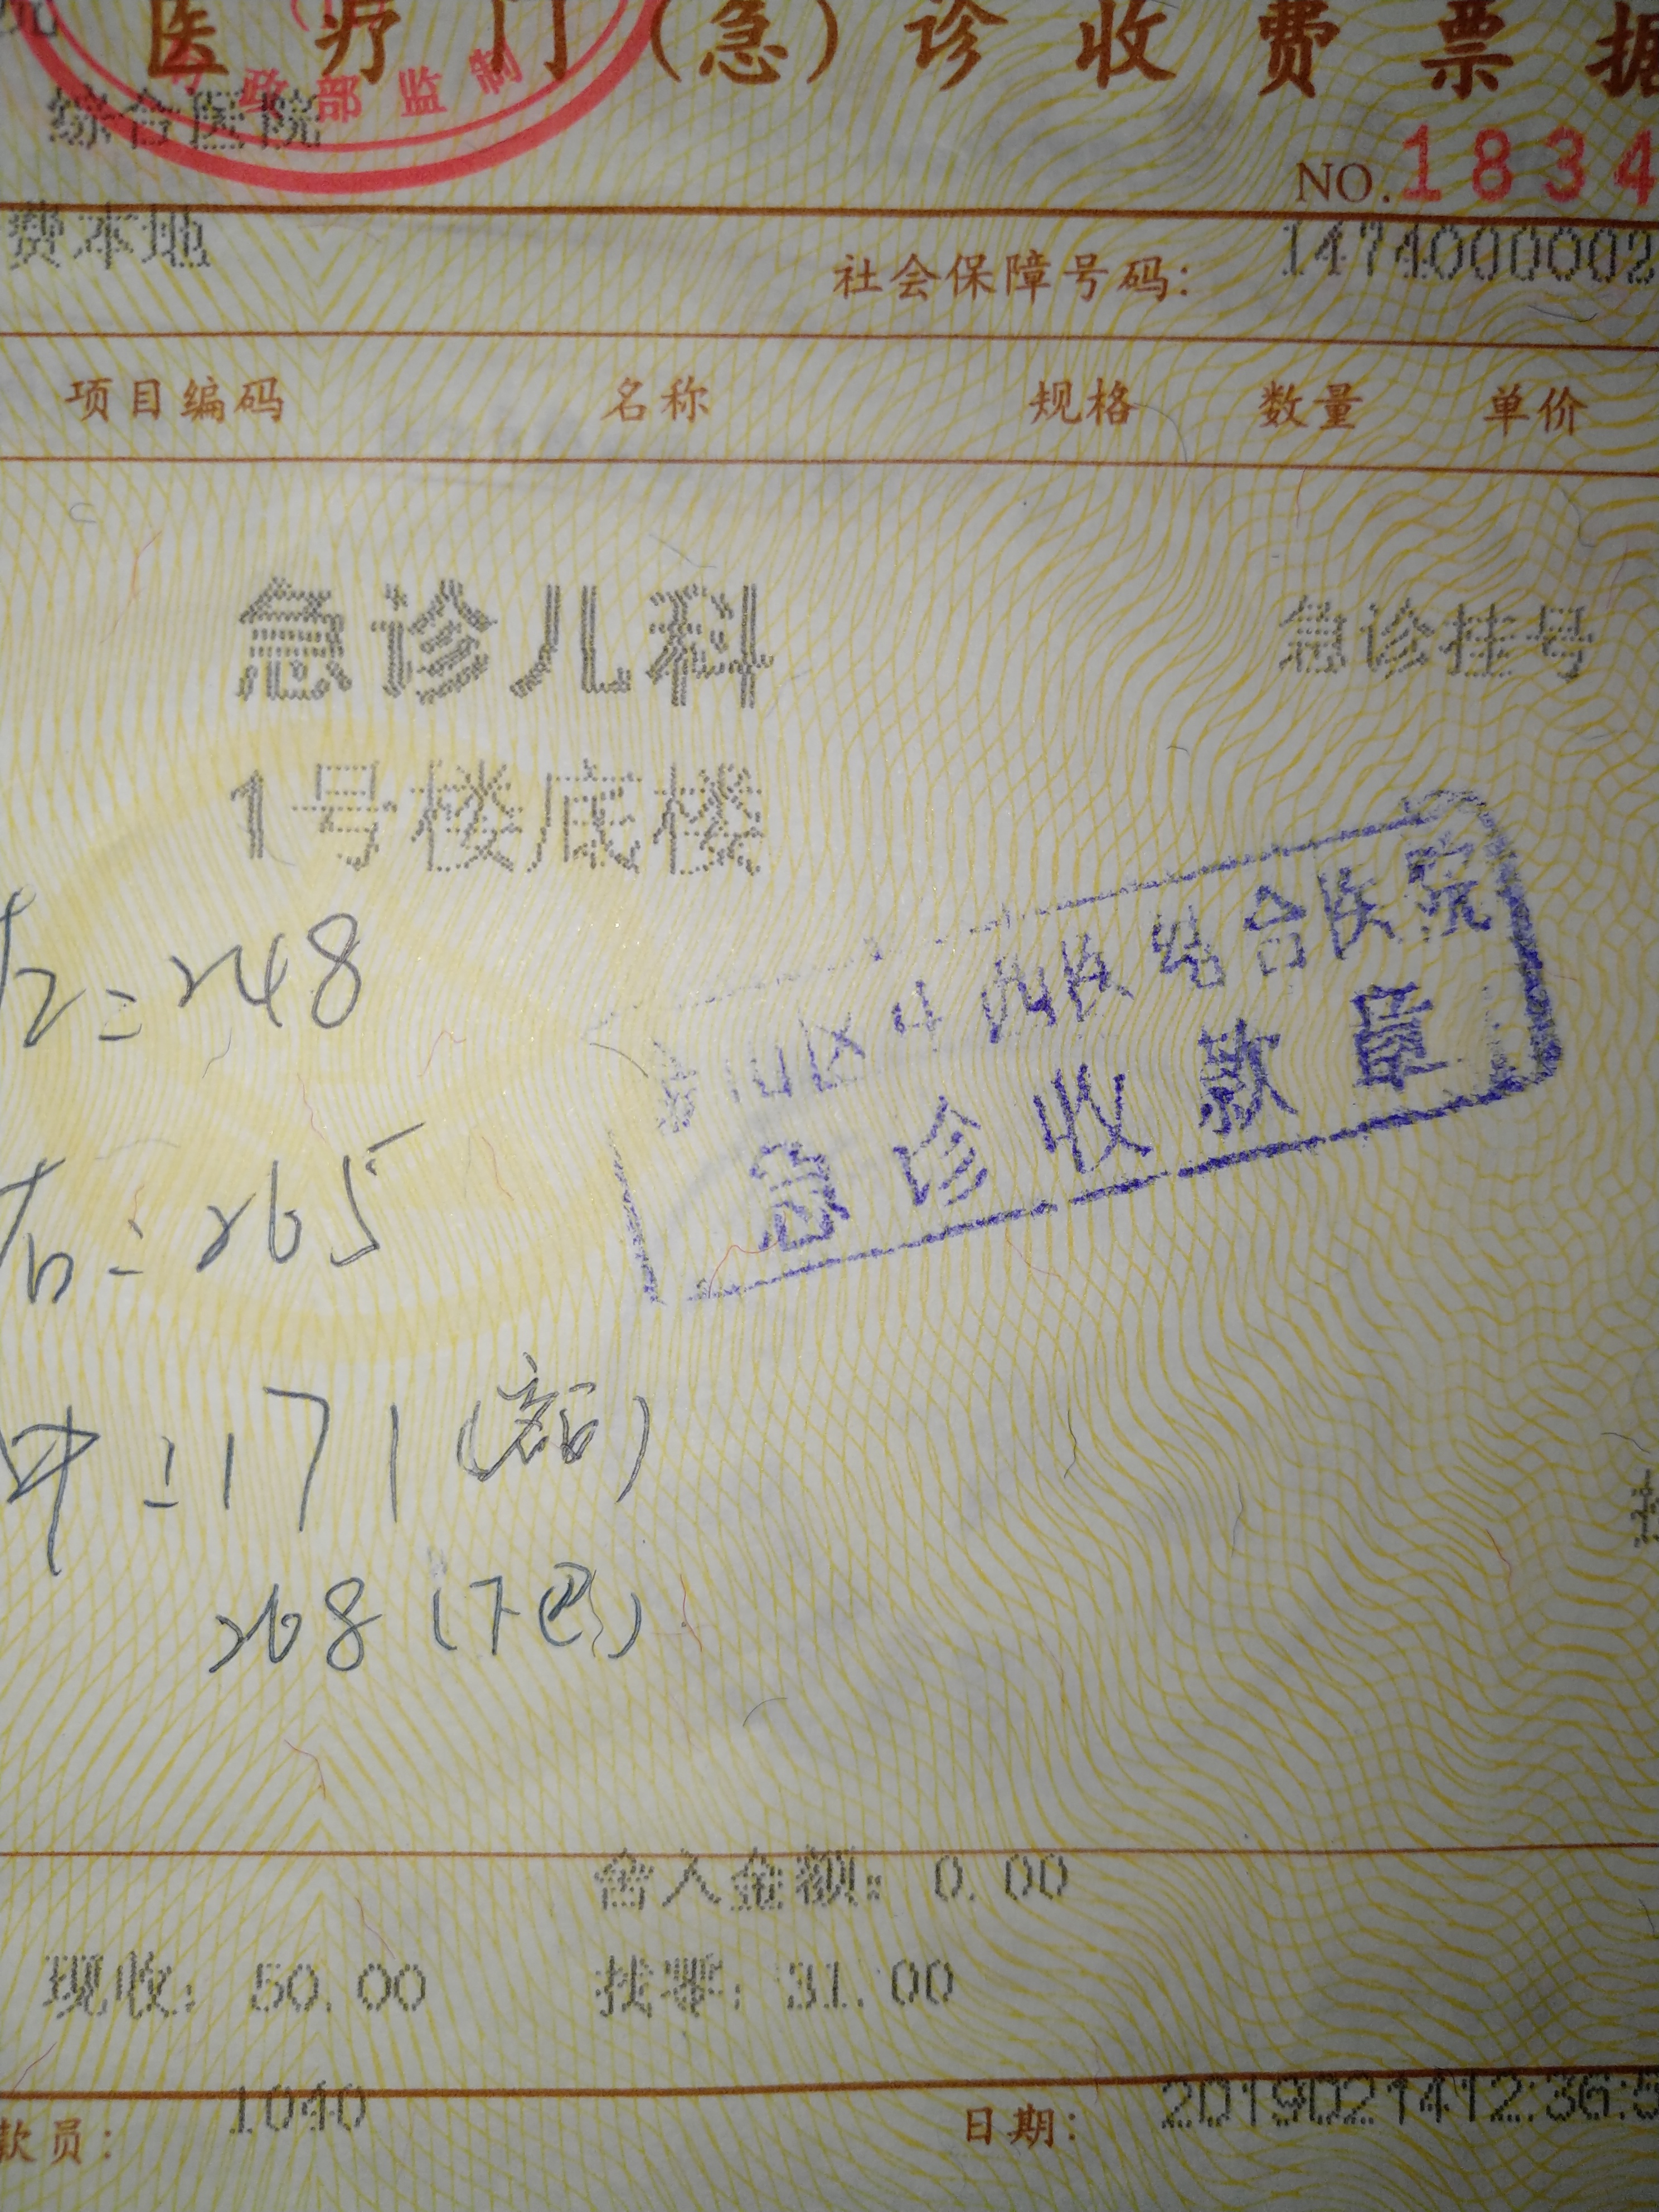 医疗门(急)诊收费票据
政部监制
综合医院
NO.1834
费本地
社会保障号码: 1474000002
项目编码 名称 规格 数量 单价
急诊儿科 急诊挂号
1号楼底楼
左=248
区中西医结合医院
急诊收款章
右=265
中=171(额)
268(下巴)
舍入金额: 0.00
现收: 50.00 找零: 31.00
款员: 1040 日期: 2019021412:36:5